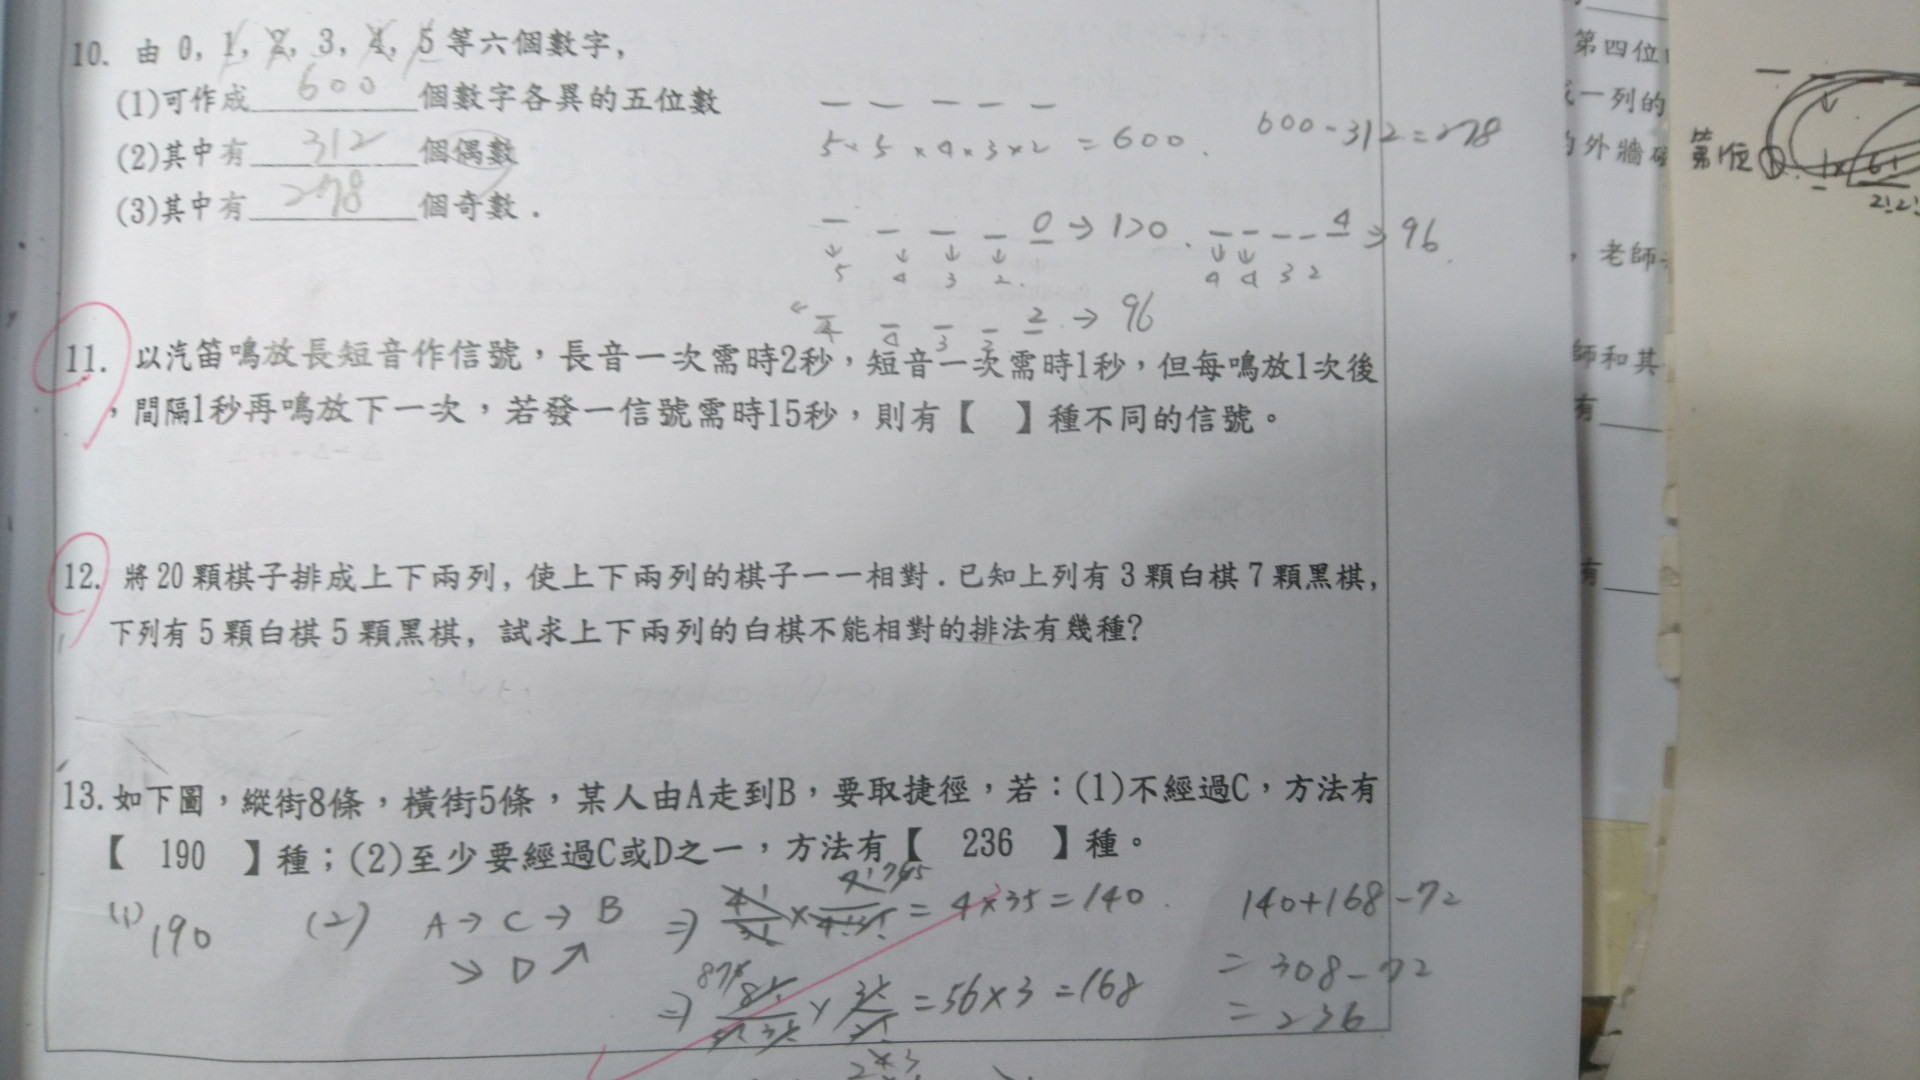 10. 由 0, 1, 2, 3, 4, 5 等六個數字,
(1)可作成 600 個數字各異的五位數
5×5×4×3×2 = 600.
600-312=278
(2)其中有 312 個偶數
(3)其中有 278 個奇數.
0 → 120.
5 4 3 2.
4 → 96
4 4 3 2
2 → 96
4 4 3 2
11. 以汽笛鳴放長短音作信號,長音一次需時2秒,短音一次需時1秒,但每鳴放1次後
,間隔1秒再鳴放下一次,若發一信號需時15秒,則有【 】種不同的信號。
12. 將 20 顆棋子排成上下兩列, 使上下兩列的棋子一一相對.已知上列有 3 顆白棋 7 顆黑棋,
下列有 5 顆白棋 5 顆黑棋, 試求上下兩列的白棋不能相對的排法有幾種?
13. 如下圖,縱街8條,橫街5條,某人由A走到B,要取捷徑,若:(1)不經過C,方法有
【 190 】種;(2)至少要經過C或D之一,方法有【 236 】種。
(1) 190
(2) A → C → B
↘ D ↗
= 4×35=140
= 56×3 =168
140+168-72
= 308-72
= 236
2×3
第四位
一列的
外牆
第1位
老師
師和其
有
有